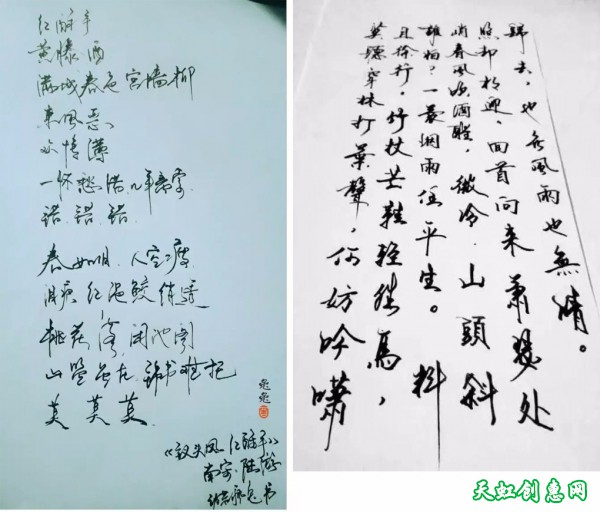 红酥手
黄滕酒
满城春色宫墙柳
东风恶
欢情薄
一怀愁绪，几年离索
错、错、错
春如旧，人空瘦
泪痕红浥鲛绡透
桃花落，闲池阁
山盟虽在，锦书难托
莫、莫、莫
《钗头凤 红酥手》
南宋·陆游
书
莫聽穿林打葉聲，何妨吟嘯
且徐行，竹杖芒鞋輕勝馬，
誰怕？一蓑烟雨任平生。料
峭春風吹酒醒，微冷，山頭斜
照却相迎，回首向来萧瑟处
歸去，也无風雨也無晴。
天虹创惠网